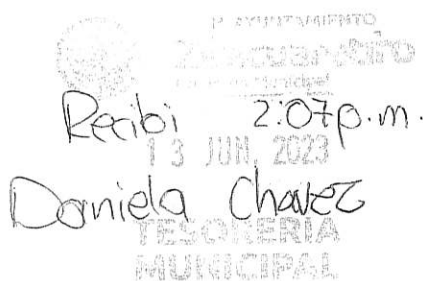 H. AYUNTAMIENTO
Recibi 2:07p.m.
13 JUN. 2023
Daniela Chavez
TESORERIA
MUNICIPAL